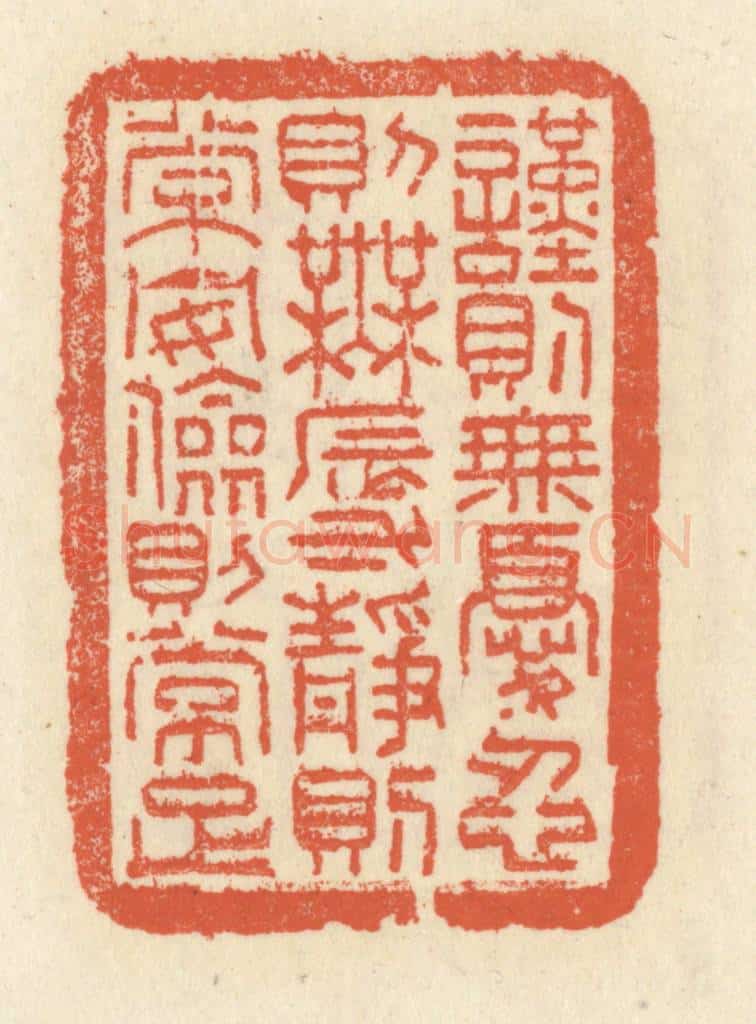 謹則無憂忍
則無辱靜則
常安儉則常足
Shufawang.CN